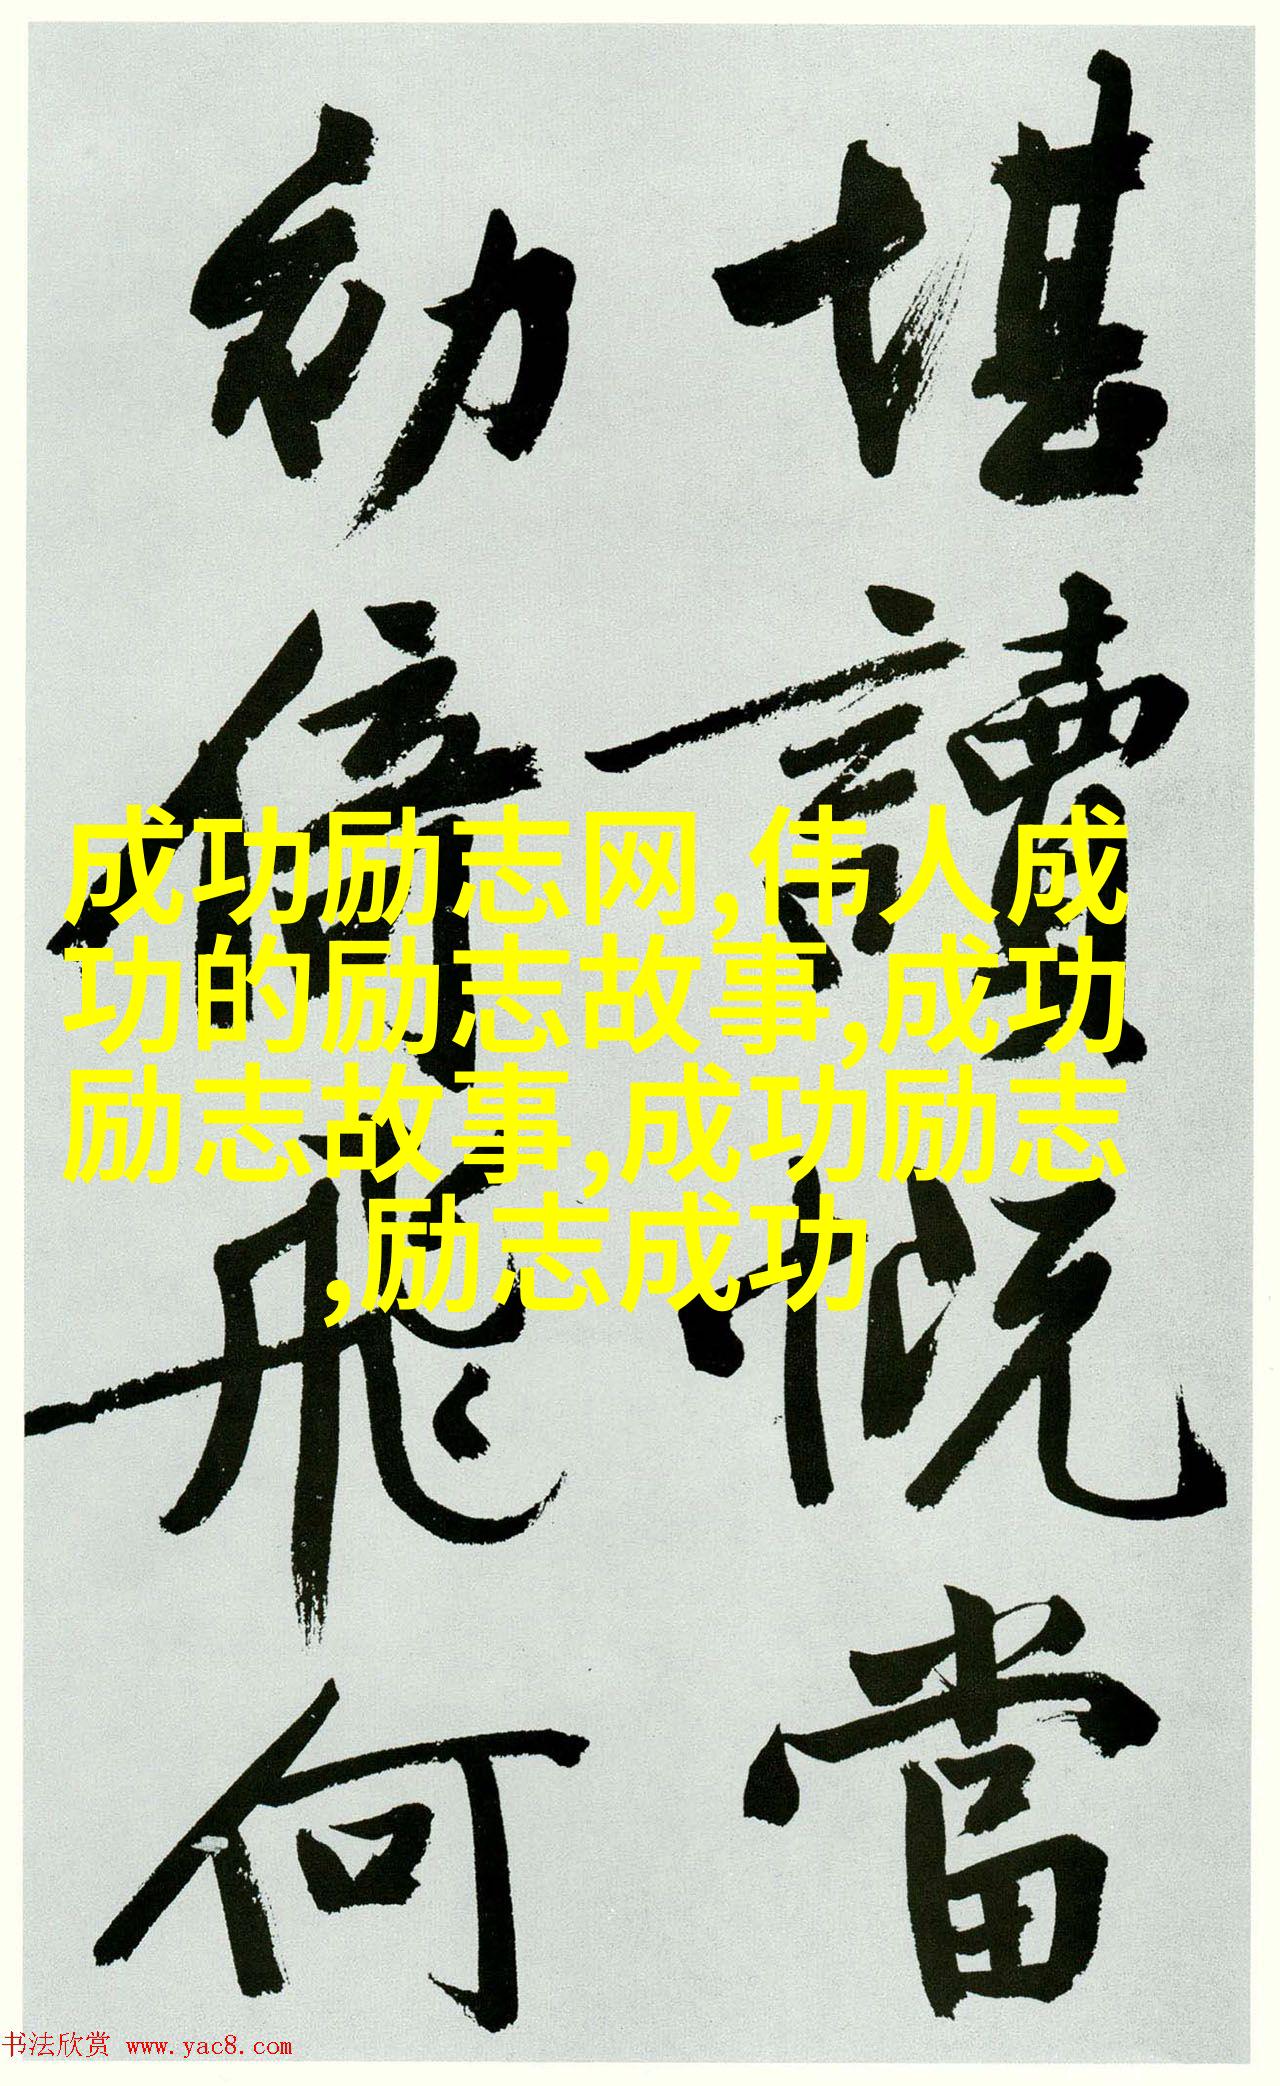 堪讀慨當
幼倚飛何
成功励志网,伟人成
功的励志故事,成功
励志故事,成功励志
,励志成功
书法欣赏 www.yac8.com